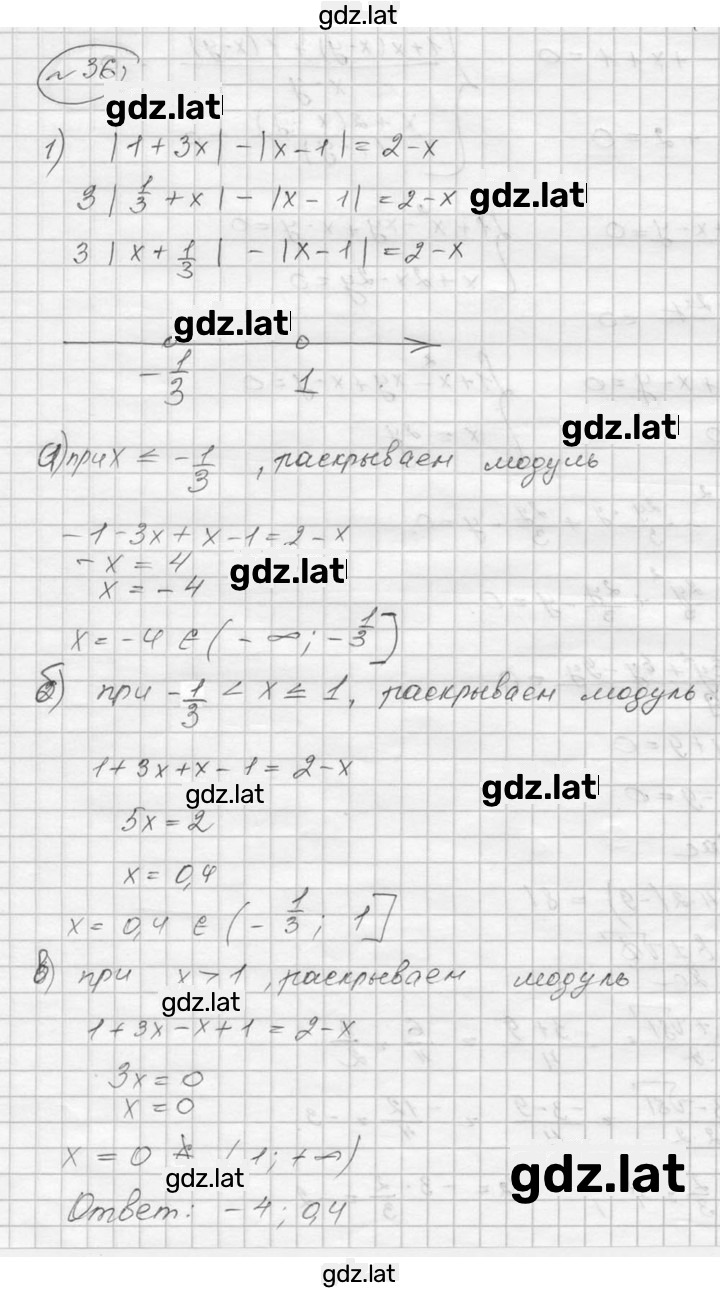 gdz.lat
№ 36
gdz.lat
1) |1 + 3x| - |x - 1| = 2 - x
3 | 1/3 + x | - |x - 1| = 2 - x gdz.lat
3 | x + 1/3 | - |x - 1| = 2 - x
gdz.lat
- 1/3 1
gdz.lat
а) при x ≤ - 1/3 , раскрываем модуль
- 1 - 3x + x - 1 = 2 - x
- x = 4
gdz.lat
x = - 4
x = - 4 ∈ ( - ∞ ; - 1/3 ]
б) при - 1/3 < x ≤ 1, раскрываем модуль
1 + 3x + x - 1 = 2 - x
gdz.lat gdz.lat
5x = 2
x = 0,4
x = 0,4 ∈ ( - 1/3 ; 1 ]
в) при x > 1 , раскрываем модуль
gdz.lat
1 + 3x - x + 1 = 2 - x
3x = 0
x = 0
x = 0 ∉ ( 1 ; + ∞ )
gdz.lat gdz.lat
Ответ: - 4 ; 0,4
gdz.lat